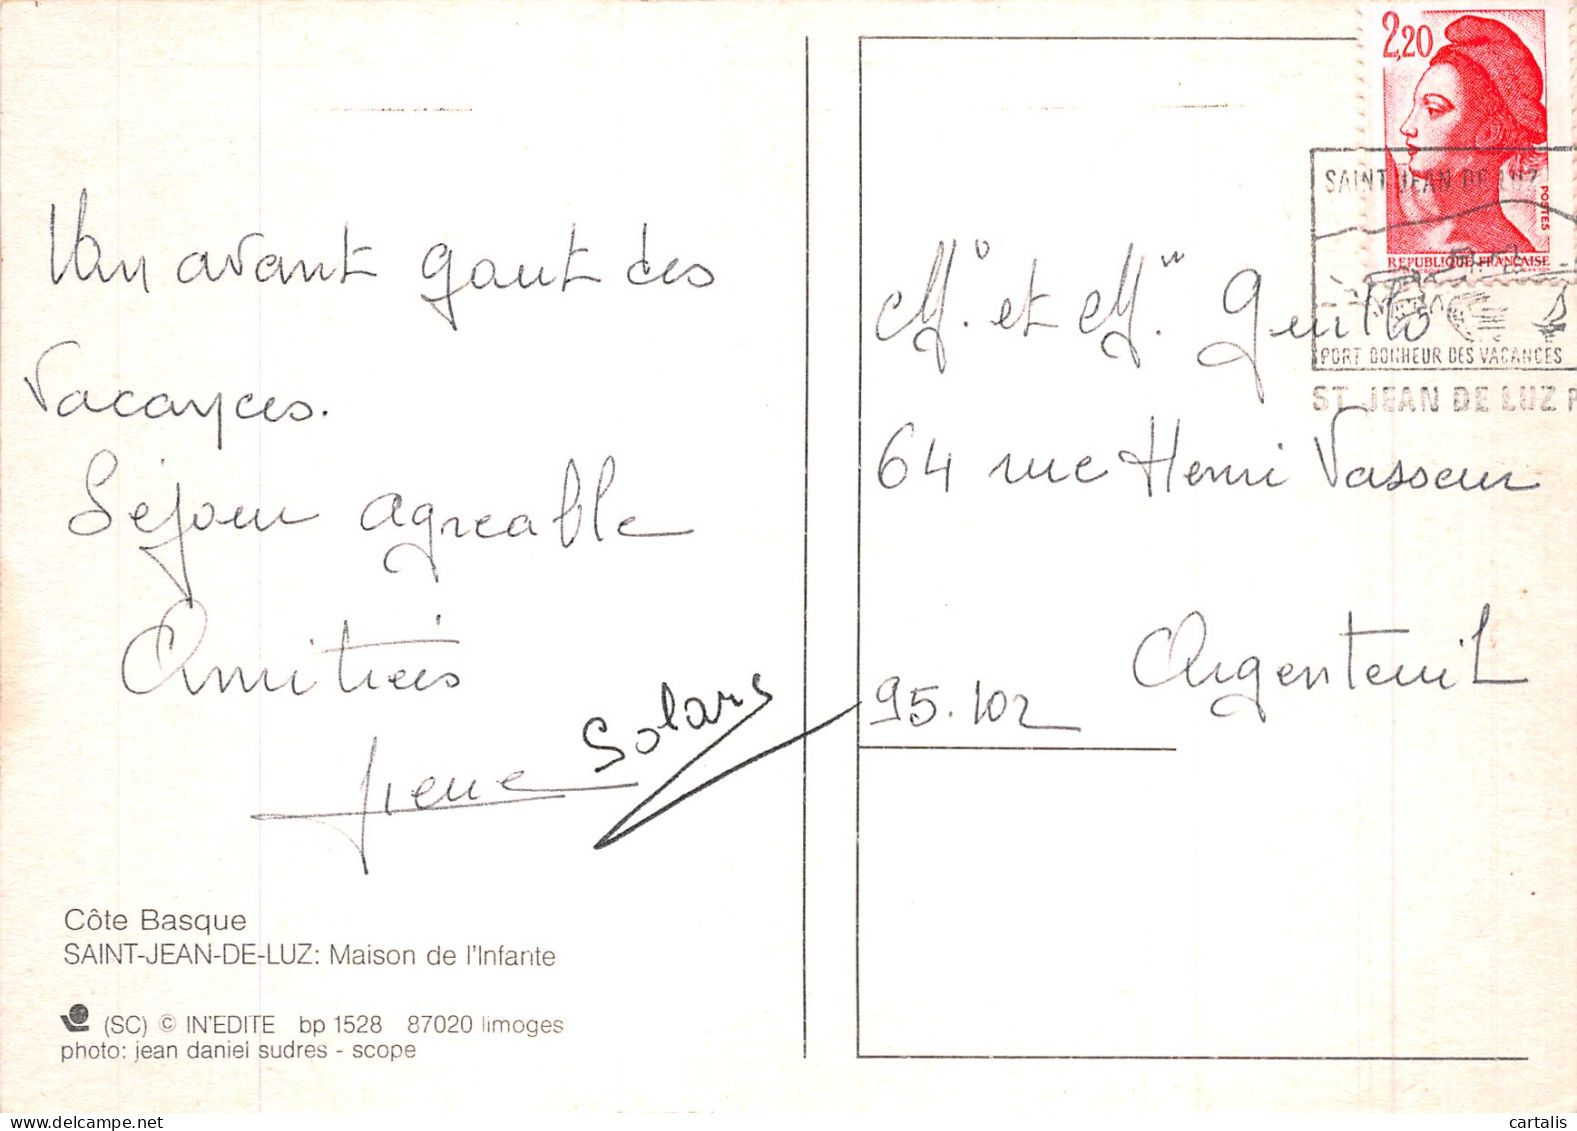 Un avant gout des
vacances.
Séjour agreable
Amitiés
Irene Solans
Côte Basque
SAINT-JEAN-DE-LUZ: Maison de l'Infante
(SC) © IN'EDITE bp 1528 87020 limoges
photo: jean daniel sudres - scope
2,20
POSTES
REPUBLIQUE FRANÇAISE
SAINT JEAN DE LUZ
PORT BONHEUR DES VACANCES
ST JEAN DE LUZ P
Mr. et Mm.
64 rue Henri Vasseur
Argenteuil
95.102
cartalis